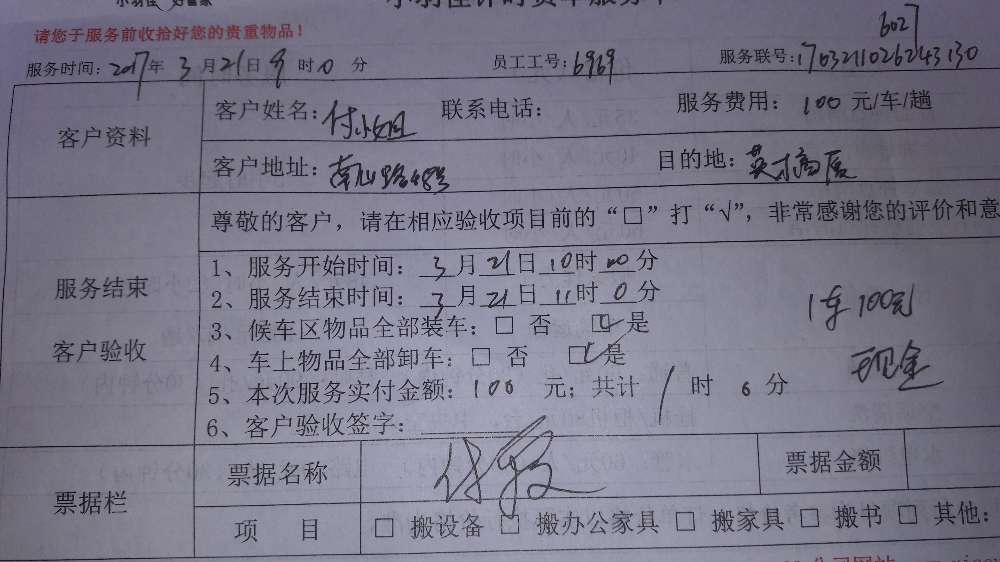 请您于服务前收拾好您的贵重物品！
6027
服务时间：2017年 3 月 21日 9 时 0 分 员工工号：6969 服务联号：1703211026243130
客户资料
客户姓名：付小姐 联系电话： 服务费用：100 元/车/趟
客户地址：南山路48号 目的地：英才高层
服务结束
客户验收
尊敬的客户，请在相应验收项目前的“□”打“√”，非常感谢您的评价和意
1、服务开始时间：3月21日10时00分
2、服务结束时间：3月21日11时0分
3、候车区物品全部装车：□ 否 ☑是
4、车上物品全部卸车：□ 否 ☑是
5、本次服务实付金额：100 元；共计 1 时 6 分
6、客户验收签字：
1车100元
现金
票据栏
票据名称 票据金额
项 目 □ 搬设备 □ 搬办公家具 □ 搬家具 □ 搬书 □ 其他：